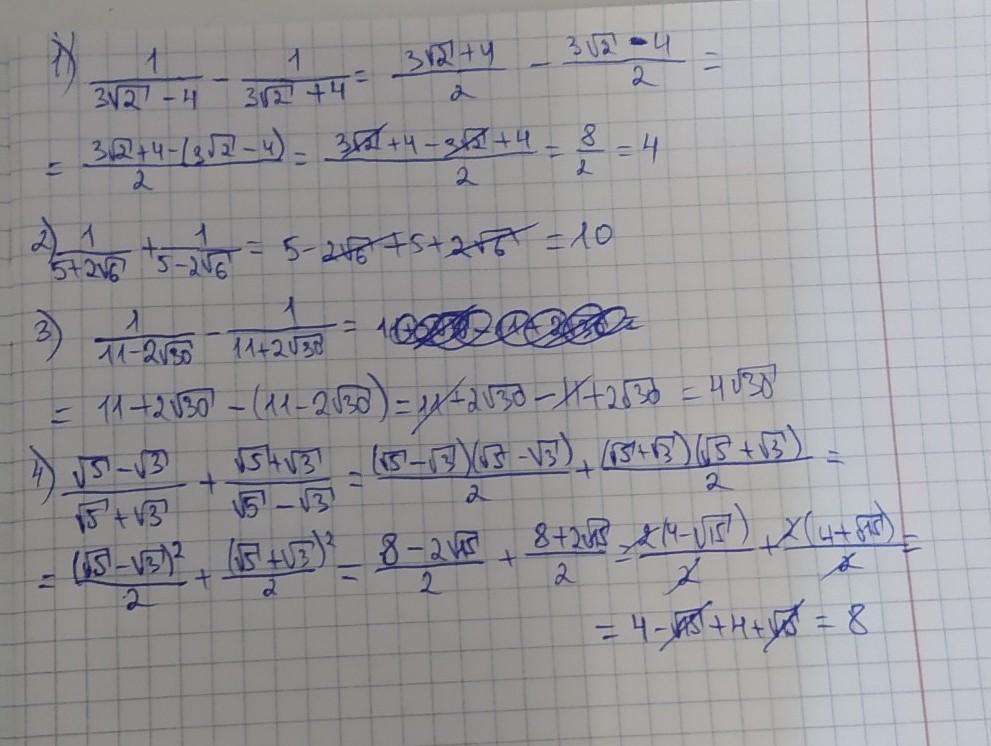 1) 1/(3√2 - 4) - 1/(3√2 + 4) = (3√2 + 4)/2 - (3√2 - 4)/2 =
= (3√2 + 4 - (3√2 - 4))/2 = (3√2 + 4 - 3√2 + 4)/2 = 8/2 = 4
2) 1/(5 + 2√6) + 1/(5 - 2√6) = 5 - 2√6 + 5 + 2√6 = 10
3) 1/(11 - 2√30) - 1/(11 + 2√30) =
= 11 + 2√30 - (11 - 2√30) = 11 + 2√30 - 11 + 2√30 = 4√30
4) (√5 - √3)/(√5 + √3) + (√5 + √3)/(√5 - √3) = (√5 - √3)(√5 - √3)/2 + (√5 + √3)(√5 + √3)/2 =
= (√5 - √3)²/2 + (√5 + √3)²/2 = (8 - 2√15)/2 + (8 + 2√15)/2 = 2(4 - √15)/2 + 2(4 + √15)/2 =
= 4 - √15 + 4 + √15 = 8